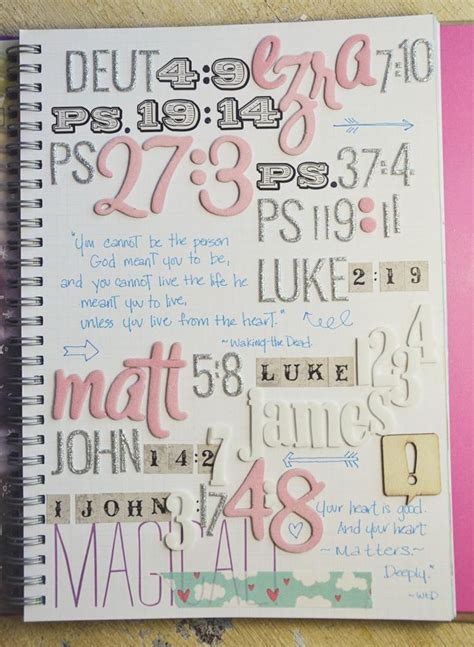 DEUT 4:9 ezra 7:10
PS. 19:14
PS 27:3 PS. 37:4
PS 119:11
"You cannot be the person
God meant you to be,
and you cannot live the life he
meant you to live,
unless you live from the heart."
~Waking the Dead
LUKE 2:19
matt 5:8 LUKE 12 34
james 4:8
JOHN 14:27
1 JOHN 3:17
Your heart is good.
And your heart
~ Matters ~
Deeply."
~WtD
!